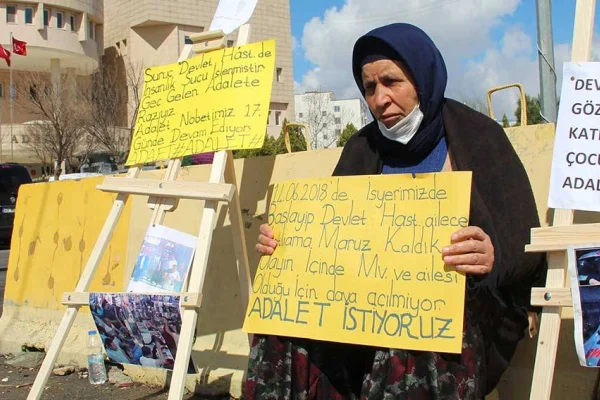 Suruç Devlet Hast.de
İnsanlık Suçu İşlenmiştir
Geç Gelen Adalete
Razıyız
Adalet Nöbetimiz 17.
Günde Devam Ediyor
ADALET#ADALET#
11.06.2018'de İşyerimizde
Başlayıp Devlet Hast. ailece
Maruz Kaldık
Olayın İçinde Mv. ve ailesi
Olduğu İçin dava açılmıyor
ADALET İSTİYORUZ
DEV
GÖZ
KAT
ÇOC
ADAL